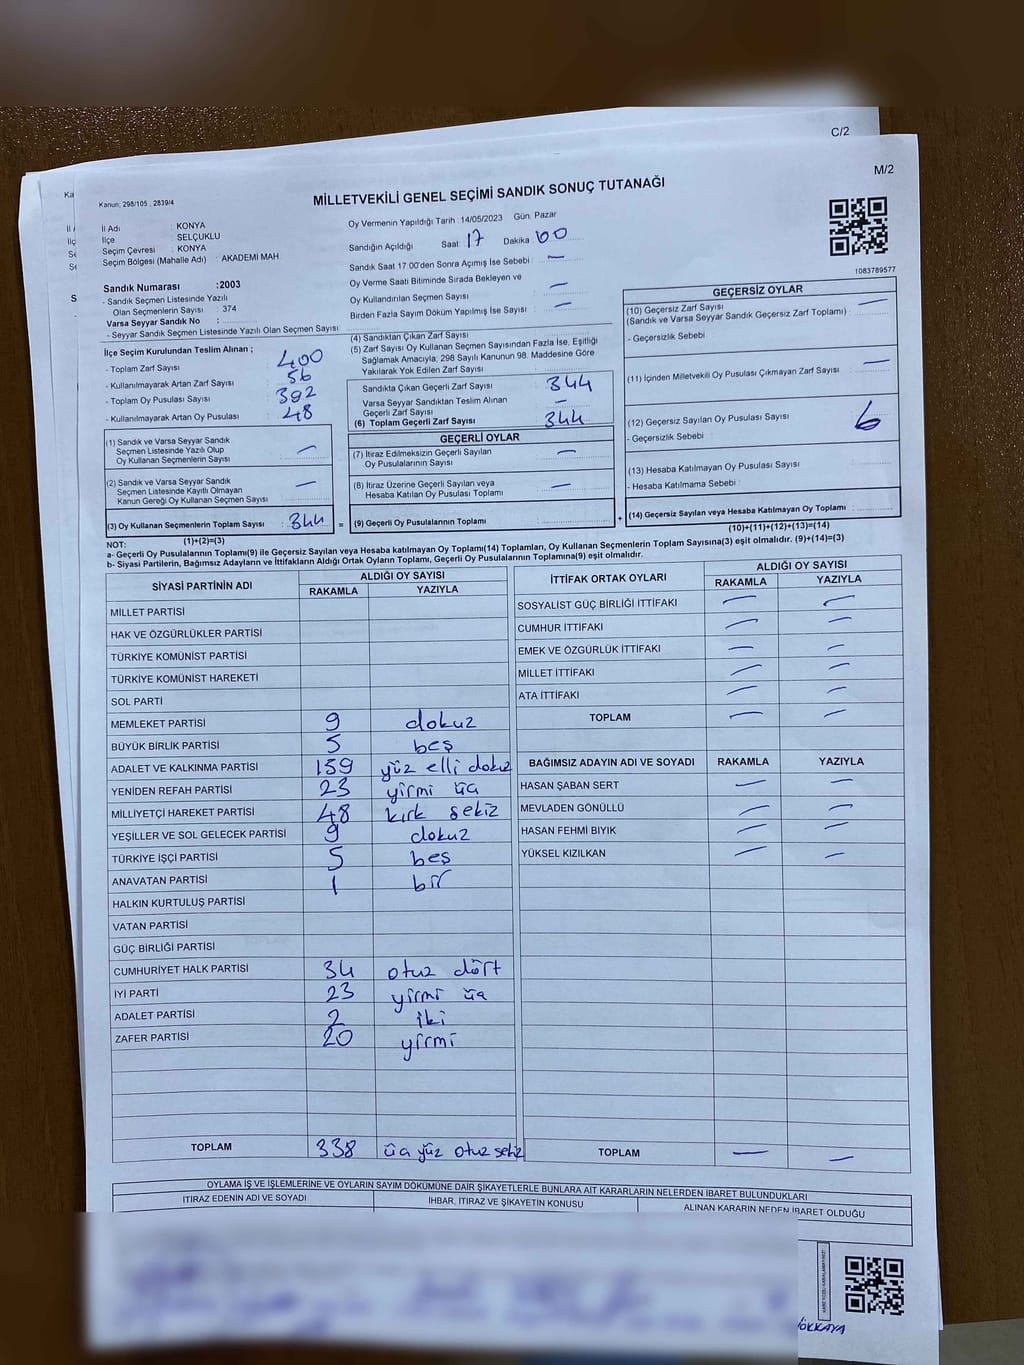 C/2
M/2
Kanun; 298/105 , 2839/4
MİLLETVEKİLİ GENEL SEÇİMİ SANDIK SONUÇ TUTANAĞI
İl Adı : KONYA
İlçe : SELÇUKLU
Seçim Çevresi : KONYA
Seçim Bölgesi (Mahalle Adı) : AKADEMİ MAH
Oy Vermenin Yapıldığı Tarih : 14/05/2023 Gün: Pazar
Sandığın Açıldığı Saat 17 Dakika 00
Sandık Saat 17.00'den Sonra Açımış İse Sebebi : —
Oy Verme Saati Bitiminde Sırada Bekleyen ve
Oy Kullandırılan Seçmen Sayısı —
Birden Fazla Sayım Döküm Yapılmış İse Sayısı : —
1083789577
Sandık Numarası :2003
- Sandık Seçmen Listesinde Yazılı
Olan Seçmenlerin Sayısı : 374
Varsa Seyyar Sandık No :
- Seyyar Sandık Seçmen Listesinde Yazılı Olan Seçmen Sayısı :
İlçe Seçim Kurulundan Teslim Alınan ;
- Toplam Zarf Sayısı : 400
- Kullanılmayarak Artan Zarf Sayısı : 56
- Toplam Oy Pusulası Sayısı : 392
- Kullanılmayarak Artan Oy Pusulası : 48
(1) Sandık ve Varsa Seyyar Sandık
Seçmen Listesinde Yazılı Olup
Oy Kullanan Seçmenlerin Sayısı : —
(2) Sandık ve Varsa Seyyar Sandık
Seçmen Listesinde Kayıtlı Olmayan
Kanun Gereği Oy Kullanan Seçmen Sayısı : —
(3) Oy Kullanan Seçmenlerin Toplam Sayısı : 344 =
(1)+(2)=(3)
(4) Sandıktan Çıkan Zarf Sayısı :
(5) Zarf Sayısı Oy Kullanan Seçmen Sayısından Fazla İse, Eşitliği
Sağlamak Amacıyla; 298 Sayılı Kanunun 98. Maddesine Göre
Yakılarak Yok Edilen Zarf Sayısı :
Sandıkta Çıkan Geçerli Zarf Sayısı : 344
Varsa Seyyar Sandıktan Teslim Alınan
Geçerli Zarf Sayısı : —
(6) Toplam Geçerli Zarf Sayısı : 344
GEÇERLİ OYLAR
(7) İtiraz Edilmeksizin Geçerli Sayılan
Oy Pusulalarının Sayısı : —
(8) İtiraz Üzerine Geçerli Sayılan veya
Hesaba Katılan Oy Pusulası Toplamı : —
(9) Geçerli Oy Pusulalarının Toplamı : +
GEÇERSİZ OYLAR
(10) Geçersiz Zarf Sayısı
(Sandık ve Varsa Seyyar Sandık Geçersiz Zarf Toplamı) : —
- Geçersizlik Sebebi
(11) İçinden Milletvekili Oy Pusulası Çıkmayan Zarf Sayısı : —
(12) Geçersiz Sayılan Oy Pusulası Sayısı : 6
- Geçersizlik Sebebi
(13) Hesaba Katılmayan Oy Pusulası Sayısı
- Hesaba Katılmama Sebebi :
(14) Geçersiz Sayılan veya Hesaba Katılmayan Oy Toplamı :
(10)+(11)+(12)+(13)=(14)
NOT:
a- Geçerli Oy Pusulalarının Toplamı(9) ile Geçersiz Sayılan veya Hesaba katılmayan Oy Toplamı(14) Toplamları, Oy Kullanan Seçmenlerin Toplam Sayısına(3) eşit olmalıdır. (9)+(14)=(3)
b- Siyasi Partilerin, Bağımsız Adayların ve İttifakların Aldığı Ortak Oyların Toplamı, Geçerli Oy Pusulalarının Toplamına(9) eşit olmalıdır.
SİYASİ PARTİNİN ADI ALDIĞI OY SAYISI
RAKAMLA YAZIYLA
MİLLET PARTİSİ
HAK VE ÖZGÜRLÜKLER PARTİSİ
TÜRKİYE KOMÜNİST PARTİSİ
TÜRKİYE KOMÜNİST HAREKETİ
SOL PARTİ
MEMLEKET PARTİSİ 9 dokuz
BÜYÜK BİRLİK PARTİSİ 5 beş
ADALET VE KALKINMA PARTİSİ 159 yüz elli dokuz
YENİDEN REFAH PARTİSİ 23 yirmi üç
MİLLİYETÇİ HAREKET PARTİSİ 48 kırk sekiz
YEŞİLLER VE SOL GELECEK PARTİSİ 9 dokuz
TÜRKİYE İŞÇİ PARTİSİ 5 beş
ANAVATAN PARTİSİ 1 bir
HALKIN KURTULUŞ PARTİSİ
VATAN PARTİSİ
GÜÇ BİRLİĞİ PARTİSİ
CUMHURİYET HALK PARTİSİ 34 otuz dört
İYİ PARTİ 23 yirmi üç
ADALET PARTİSİ 2 iki
ZAFER PARTİSİ 20 yirmi
TOPLAM 338 üç yüz otuz sekiz
İTTİFAK ORTAK OYLARI ALDIĞI OY SAYISI
RAKAMLA YAZIYLA
SOSYALİST GÜÇ BİRLİĞİ İTTİFAKI — —
CUMHUR İTTİFAKI — —
EMEK VE ÖZGÜRLÜK İTTİFAKI — —
MİLLET İTTİFAKI — —
ATA İTTİFAKI — —
TOPLAM — —
BAĞIMSIZ ADAYIN ADI VE SOYADI RAKAMLA YAZIYLA
HASAN ŞABAN SERT — —
MEVLADEN GÖNÜLLÜ — —
HASAN FEHMİ BIYIK — —
YÜKSEL KIZILKAN — —
TOPLAM — —
OYLAMA İŞ VE İŞLEMLERİNE VE OYLARIN SAYIM DÖKÜMÜNE DAİR ŞİKAYETLERLE BUNLARA AİT KARARLARIN NELERDEN İBARET BULUNDUKLARI
İTİRAZ EDENİN ADI VE SOYADI İHBAR, İTİRAZ VE ŞİKAYETİN KONUSU ALINAN KARARIN NEDEN İBARET OLDUĞU